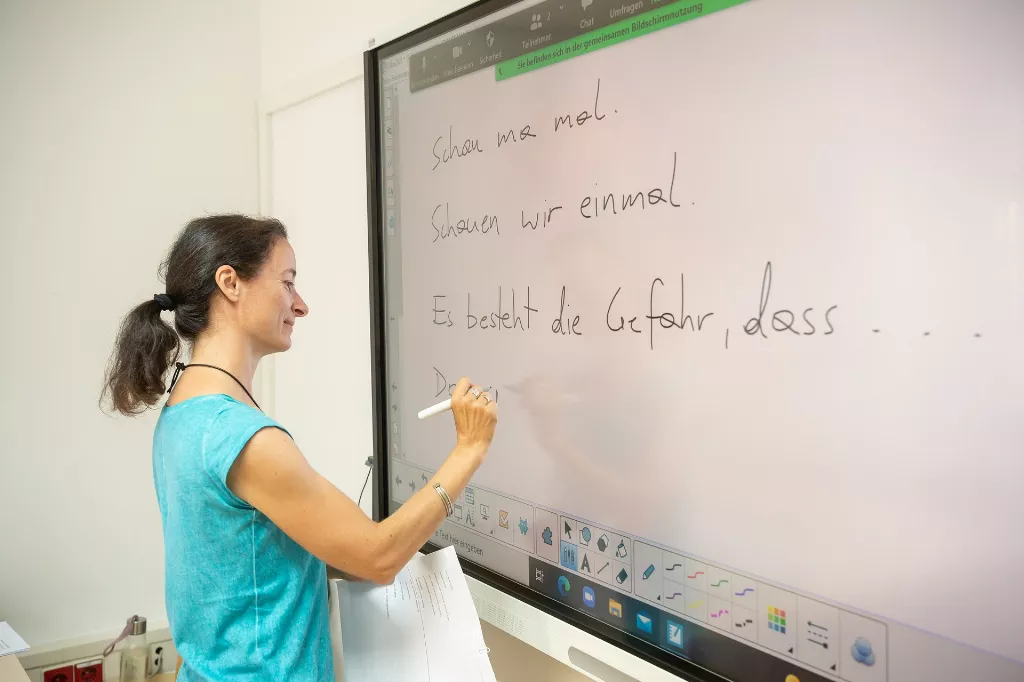 Teilnehmer
2
Chat
Umfragen
Sicherheit
Sie befinden sich in der gemeinsamen Bildschirmnutzung
Schau ma mal.
Schauen wir einmal.
Es besteht die Gefahr, dass . . . .
Text hier eingeben